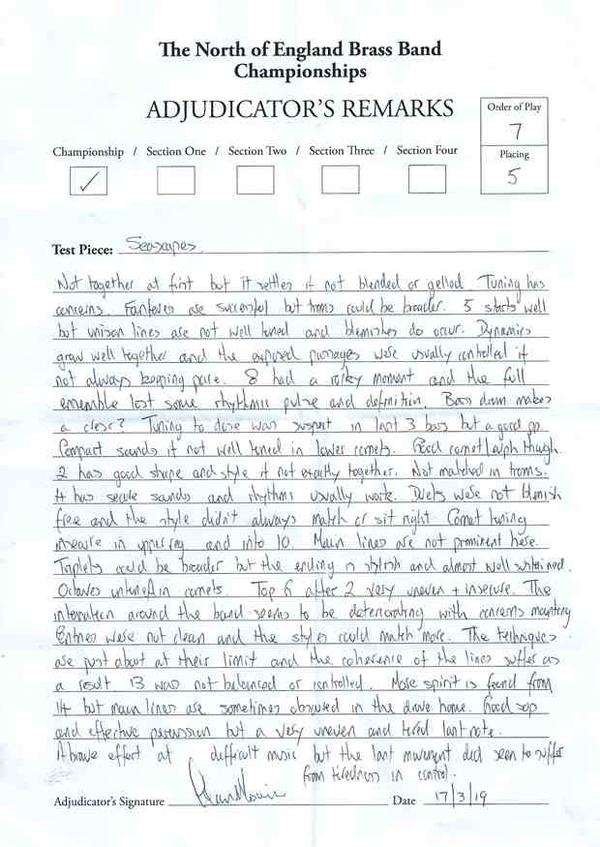 The North of England Brass Band
Championships
ADJUDICATOR'S REMARKS
Order of Play
7
Placing
5
Championship / Section One / Section Two / Section Three / Section Four
✓
Test Piece: Seascapes
Not together at first but it settles if not blended or gelled. Tuning has
concerns. Fanfares are successful but troms could be broader. 5 starts well
but unison lines are not well tuned and blemishes do occur. Dynamics
grow well together and the exposed passages were usually controlled if
not always keeping pace. 8 had a rocky moment and the full
ensemble lost some rhythmic pulse and definition. Bass drum makes
a close? Tuning to close was suspect in last 3 bars but a good go.
Compact sounds if not well tuned in lower cornets. Good cornet/euph though.
2 has good shape and style if not exactly together. Not matched in troms.
4 has secure sounds and rhythms usually work. Duets were not blemish
free and the style didn't always match or sit right. Cornet tuning
insecure in and into 10. Main lines are not prominent here.
Triplets could be broader but the ending is stylish and almost well sustained.
Octaves in cornets. Top 6 after 2 very uneven + insecure. The
intonation around the band seems to be deteriorating with concerns mounting
Entries were not clean and the styles could match more. The techniques
are just about at their limit and the coherence of the lines suffer as
a result 13 was not balanced or controlled. More spirit is found from
14 but main lines are sometimes obscured in the drive home. Good sop
and effective percussion but a very uneven and tired last note.
A brave effort at difficult music but the last movement did seem to suffer
from tiredness in control.
Adjudicator's Signature Date 17/3/19